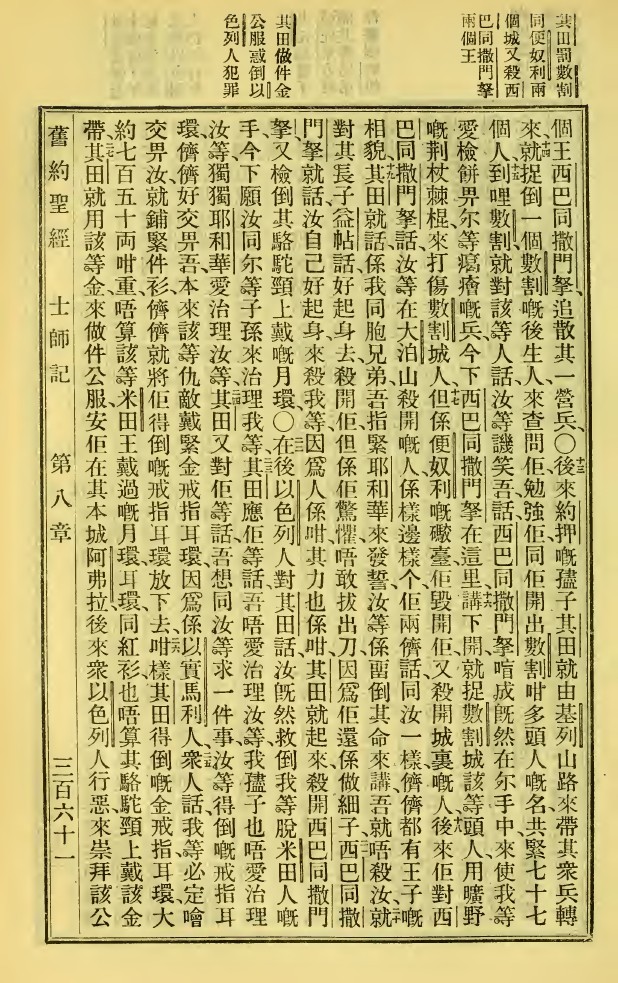 其田罰數割
同便奴利兩
個城又殺西
巴同撒門拏
兩個王
其田做件金
公服惑倒以
色列人犯罪
個王西巴同撒門拏、追散其一營兵、〇十三後來約押嘅孻子其田就由基列山路來帶其衆兵轉
來、十四就捉倒一個數割嘅後生人、來查問佢、勉強佢同佢開出數割咁多頭人嘅名、共緊七十七
個人、十五到哩數割就對該等人話、汝等譏笑吾話、西巴同撒門拏喑成旣然在尔手中、來使我等
愛檢餅畀尔等㿈瘡嘅兵、今下西巴同撒門拏在這里、十六講下開、就捉數割城該等頭人、用曠野
嘅荆杖棘棍、來打傷數割城人、十七但係便奴利嘅礮臺佢毀開佢、又殺開城裏嘅人、十八後來佢對西
巴同撒門拏話、汝等在大泊山殺開嘅人係樣邊樣个、佢兩儕話、同汝一樣、儕儕都有王子嘅
相貌、十九其田就話、係我同胞兄弟、吾指緊耶和華來發誓、汝等係畱倒其命來講、吾就唔殺汝、二十就
對其長子益帖話、好起身去殺開佢、但係佢驚懼唔敢拔出刀、因爲佢還係做細子、二一西巴同撒
門拏就話、汝自己好起身來殺我等、因爲人係咁其力也係咁、其田就起來殺開西巴同撒門
拏、又檢倒其駱駝頸上戴嘅月環、〇二二在後以色列人對其田話、汝旣然救倒我等脫米田人嘅
手、今下願汝同尔等子孫來治理我等、二三其田應佢等話、吾唔愛治理汝等、我孻子也唔愛治理
汝等、獨獨耶和華愛治理汝等、二四其田又對佢等話、吾想同汝等求一件事、汝等得倒嘅戒指耳
環、儕儕好交畀吾、本來該等仇敵戴緊金戒指耳環、因爲係以實馬利人、二五衆人話、我等必定噲
交畀汝、就鋪緊件衫、儕儕就將佢得倒嘅戒指耳環放下去、二六咁樣其田得倒嘅金戒指耳環、大
約七百五十両咁重、唔算該等米田王戴過嘅月環、耳環、同紅衫、也唔算其駱駝頸上戴該金
帶、二七其田就用該等金、來做件公服、安佢在其本城阿弗拉、後來衆以色列人行惡來崇拜該公
舊約聖經　士師記　第八章　三百六十一